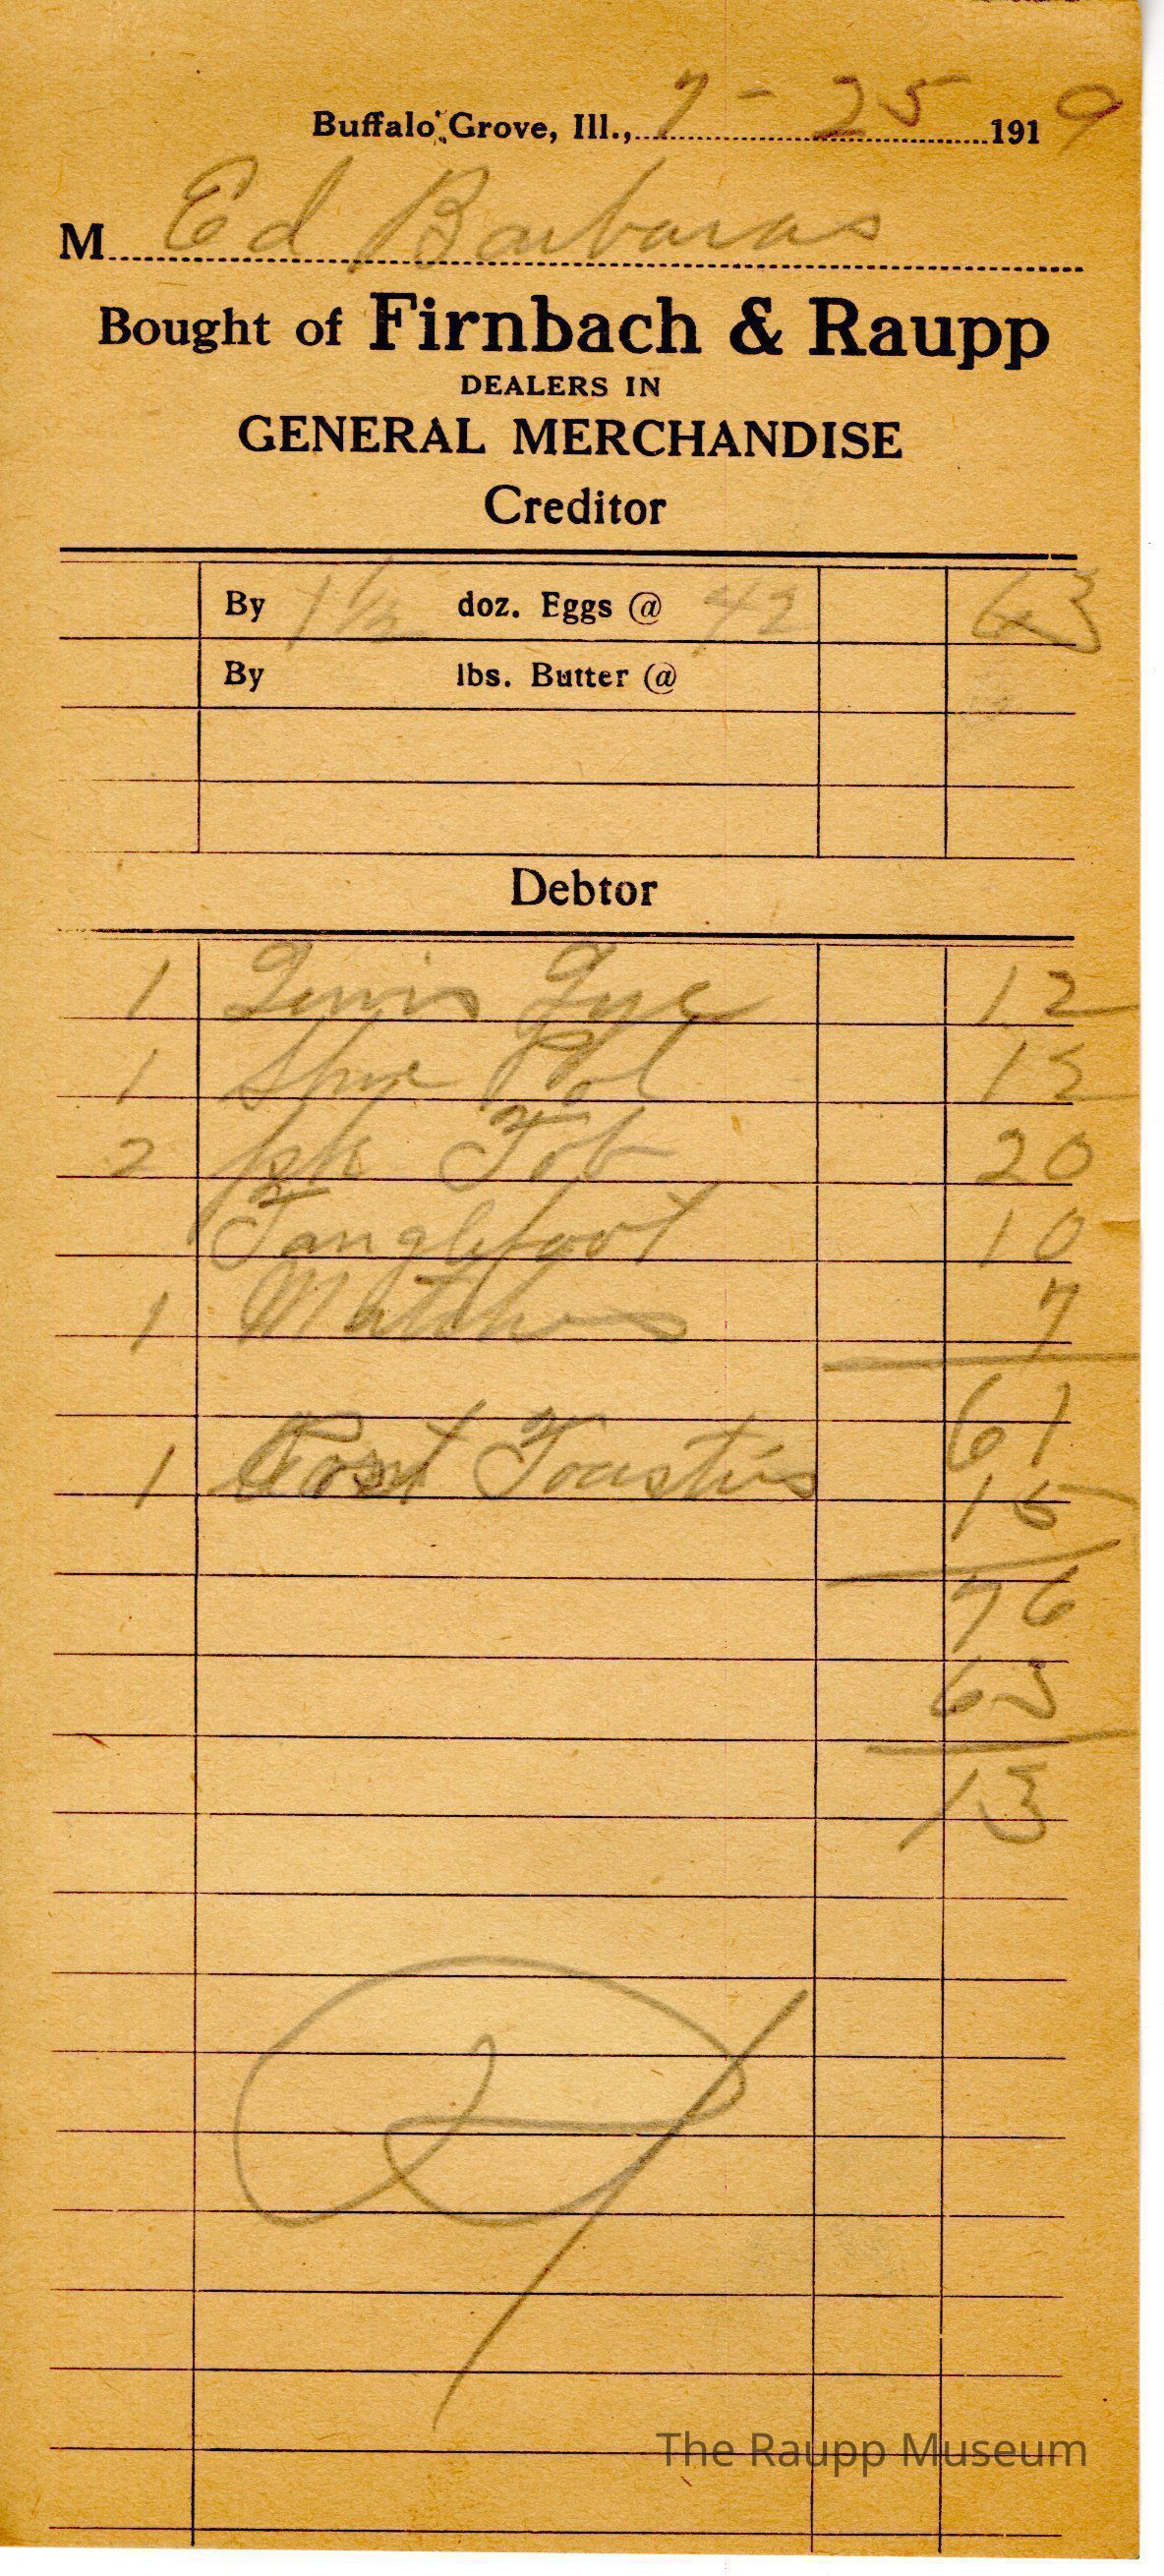 Buffalo Grove, Ill., 7-25 1919
M Ed Barbaras
Bought of Firnbach & Raupp
DEALERS IN
GENERAL MERCHANDISE
Creditor
By 1½ doz. Eggs @ 42 63
By lbs. Butter @
Debtor
1 Lewis Lye 12
1 Shoe Pol 12
2 pk Tob 20
Tanglefoot 10
1 Matches 7
61
1 Post Toasties 15
76
63
13
The Raupp Museum